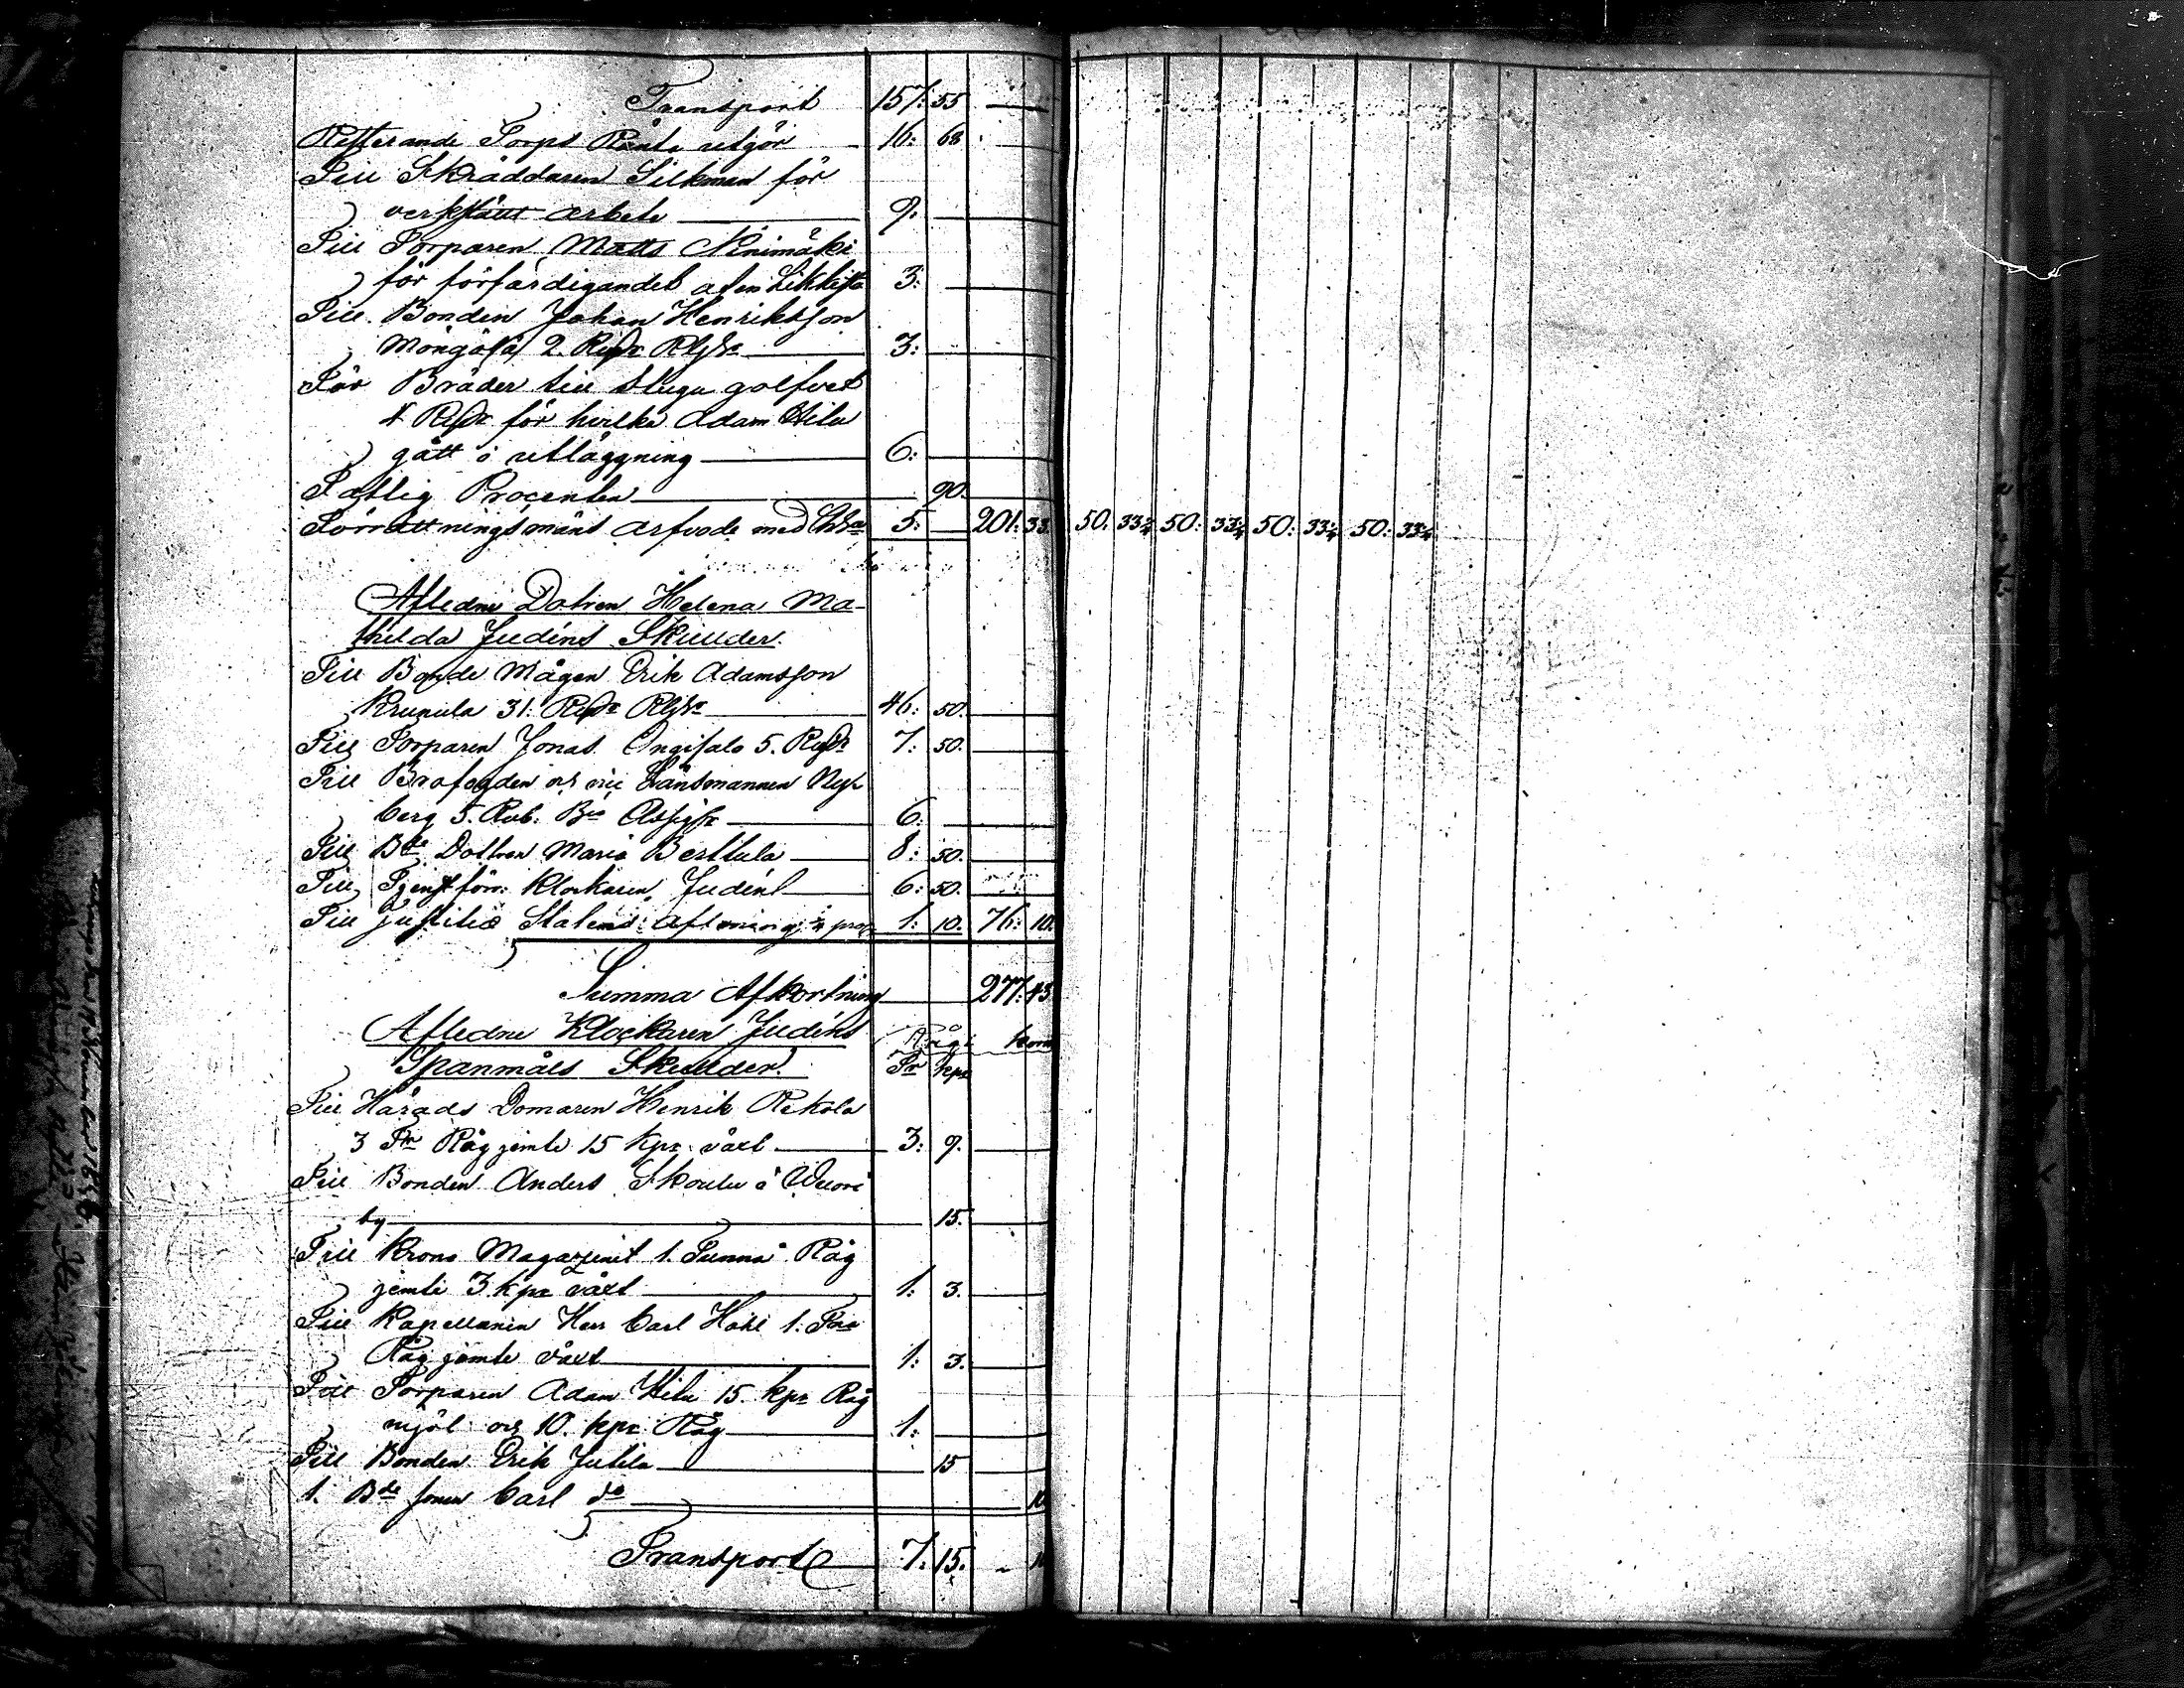 Transport 157: 55
Resterande Torps Ränta utgör 16: 68
Till Skräddaren Silkman för
verkställt arbete 9.
Till Torparen Matts Ninimäki
för förfärdigandet af en Likkista 3:
Till Bonden Johan Henriksson
2. 3:
För Bräder till stugu golfvet
4 för hvilka Adam Hilu
gått i utläggning 6:
Fattig Procenten 90.
Förrättningsmäns arfvode med 5: 201: 33. 50: 33¼ 50: 33¼ 50: 33¼ 50: 33¼
Afledne Dotren Helena Ma-
thilda Judéns Skulder.
Till Bonde Mågen Erik Adamsson
Krunula 31. 46: 50.
Till Torparen Jonas 5. 7: 50.
Till Brofogden och vice Länsmannen Ny-
berg 5. Rub. Bco Assig 6.
Till Bde Dottren Maria Berttula 8: 50.
Till Klockaren Judén 6: 50.
Till Justitiæ Statens 1: 10. 76: 10.
Summa Afkortning 277: 43
Aflidne Klockaren Judéns Råg Korn
Spanmåls Skulder. Tr Kpr
Till Härads Domaren Henrik Rekola
3 Tnr Råg jemte 15 Kpr växt 3: 9.
Till Bonden Anders Skoulu i
by 15.
Till Krono Magazinet 1. Tunna Råg
jemte 3 kpr växt 1: 3.
Till Kapellanen Herr Carl 1. Tna
Råg jemte växt 1: 3.
Till Torparen Adam Hilu 15. kpr Råg
mjöl och 10. kpr Råg 1:
Till Bonden Erik Jutila 15
1. Bde sonen Carl do 10
Transport 7: 15.